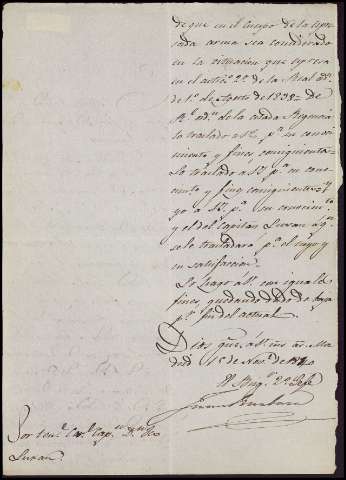 de que en el Cuerpo de la espre
sada arma sea considerado
en la situacion que espresa
en el artº 2º de la Real orn.
de 1º de Agosto de 1838 = De
Rl. orn. de la citada Regencia
lo traslado a V. pª su conoci
miento y fines consiguientes =
Lo traslado a V. pª su cono
cimto y fines consiguientes = Y
yo a V. pª su conocimto
y el del Capitan Duran á qn
se lo trasladará pª el suyo y
su satisfaccion =
Lo hago á V. con iguales
fines, quedando dado de baja
pr fin del actual.
Dios gue. á V. ms as. Ma
drid 1º de Novre de 1840
El Brigr 2º Gefe
Por Tente Corl Capn Dn
Duran.